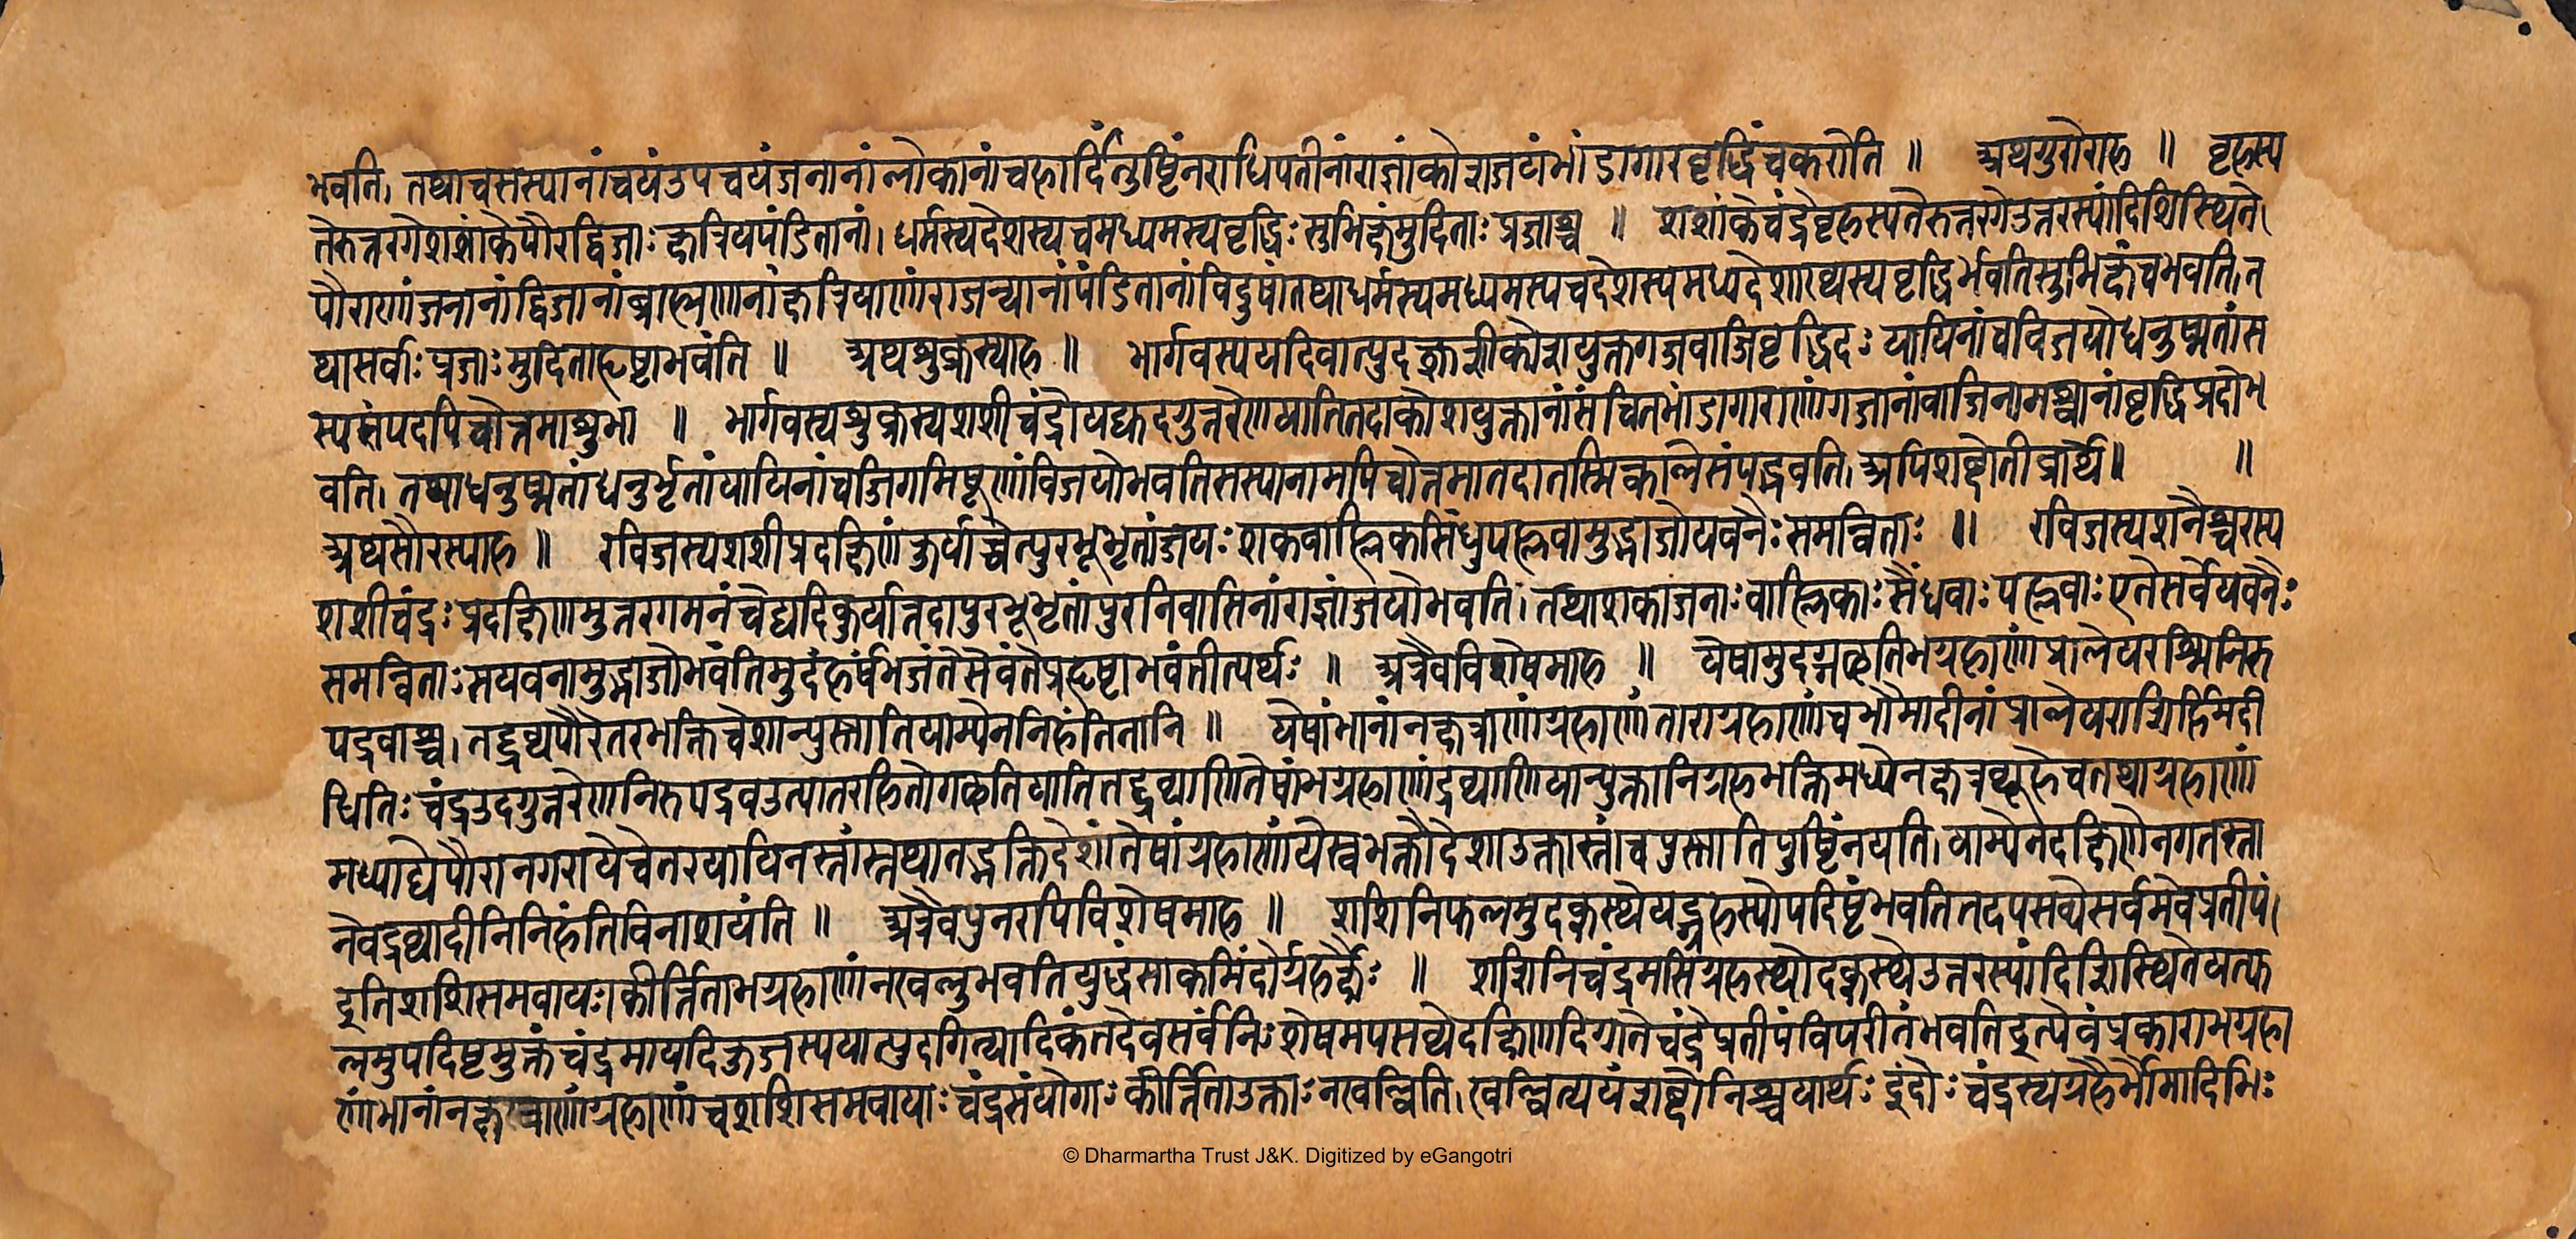 भवति। तथाचसस्यानांचयंउपचयंजनानांलोकानांचहार्दिंतुष्टिंनराधिपतीनांराज्ञांकोशजटांभांडागारवृद्धिंचकरोति ॥ अथगुरोराह ॥ बृहस्प
तेरुत्तरगेशशांकेपौरद्विजाःक्षत्रियपंडितानां। धर्मस्यदेशस्यचमध्यमस्यवृद्धिःसुभिक्षंमुदिताःप्रजाश्च ॥ शशांकेचंद्रेबृहस्पतेरुत्तरगेउत्तरस्यांदिशिस्थिते।
पौराणांजनानांद्विजानांब्राह्मणानांक्षत्रियाणांराजन्यानांपंडितानांविदुषांतथाधर्मस्यमध्यमस्यचदेशस्यमध्यदेशाख्यस्यवृद्धिर्भवतिसुभिक्षंचभवति।त
थासर्वाःप्रजाःमुदिताहृष्टाभवंति ॥ अथशुक्रस्याह ॥ भार्गवस्ययदियात्युदक्शशीकोशयुक्तगजवाजिवृद्धिदःयायिनांचविजयोधनुष्मतांस
स्यसंपदपिचोत्तमाशुभा ॥ भार्गवस्यशुक्रस्यशशीचंद्रोयद्युदगुत्तरेणयातितदाकोशयुक्तानांसंचितभांडागाराणांगजानांवाजिनामश्वानांवृद्धिप्रदोभ
वति। तथाधनुष्मतांधनुर्भृतांयायिनांचजिगमिषूणांविजयोभवतिसस्यानामपिचोत्तमातदातस्मिन्कालेसंपद्भवति।अपिशब्दोतीवार्थे॥ ॥
अथसौरस्याह ॥ रविजस्यशशीप्रदक्षिणंकुर्याच्चेत्पुरभूभृतांजयःशकबाह्लिकसिंधुपह्लवामुद्भाजोयवनैःसमन्विताः ॥ रविजस्यशनैश्चरस्य
शशीचंद्रःप्रदक्षिणमुत्तरगमनंचेद्यदिकुर्यात्तदापुरभूभृतांपुरनिवासिनांराज्ञांजयोभवति। तथाशकाजनाःबाह्लिकाःसैंधवाःपह्लवाःएतेसर्वेयवनैः
समन्विताःसयवनामुद्भाजोभवंतिमुदंहर्षंभजंतेसेवंतेप्रहृष्टाभवंतीत्यर्थः ॥ अत्रैवविशेषमाह ॥ येषामुदग्गछतिभग्रहाणांप्रालेयरश्मिर्निरु
पद्रवाश्च। तद्द्रव्यपौरेतरभक्तिदेशान्पुस्नातियाम्येननिहंतितानि ॥ येषांभानांनक्षत्राणांग्रहाणांताराग्रहाणांचभौमादीनांप्रालेयराशिर्हिमदी
धितिःचंद्रउदगुत्तरेणनिरुपद्रवउत्पातरहितोगछतियातितद्द्रव्याणितेषांभग्रहाणांद्रव्याणियान्युक्तानिग्रहभक्तिमध्येनक्षत्रव्यूहेचतथाग्रहाणां
मध्याद्येपौरानगरायेचेतरयायिनस्तांस्तथातद्भक्तिदेशांतेषांग्रहाणांयेस्वभक्तौदेशाउक्तास्तांचपुस्नातिपुष्टिंनयति। याम्येनदक्षिणेनगतस्ता
नेवद्रव्यादीनिनिहंतिविनाशयंति ॥ अत्रैवपुनरपिविशेषमाह ॥ शशिनिफलमुदक्स्थेयद्ग्रहस्योपदिष्टंभवतितदपसव्येसर्वमेवप्रतीपं।
इतिशशिसमवायाःकीर्त्तिताभग्रहाणांनखलुभवतियुद्धंसाकमिंदोर्ग्रहर्क्षैः ॥ शशिनिचंद्रमसिग्रहस्योदक्स्थेउत्तरस्यांदिशिस्थितेयत्फ
लमुपदिष्टमुक्तंचंद्रमायदिकुजस्ययात्युदगित्यादिकंतदेवसर्वंनिःशेषमपसव्येदक्षिणदिग्गतेचंद्रेप्रतीपंविपरीतंभवतिइत्येवंप्रकाराभग्रहा
णांभानांनक्षत्राणांग्रहाणांचशशिसमवायाःचंद्रसंयोगाःकीर्त्तिताउक्ताःनखल्विति। खल्वित्ययंशब्दोनिश्चयार्थःइंदोःचंद्रस्यग्रहैर्भौमादिभिः
© Dharmartha Trust J&K. Digitized by eGangotri